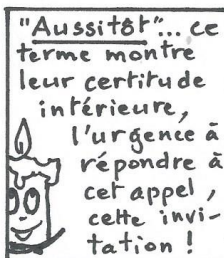 "Aussitôt"... ce
terme montre
leur certitude
intérieure,
l'urgence à
répondre à
cet appel,
cette invi-
tation !